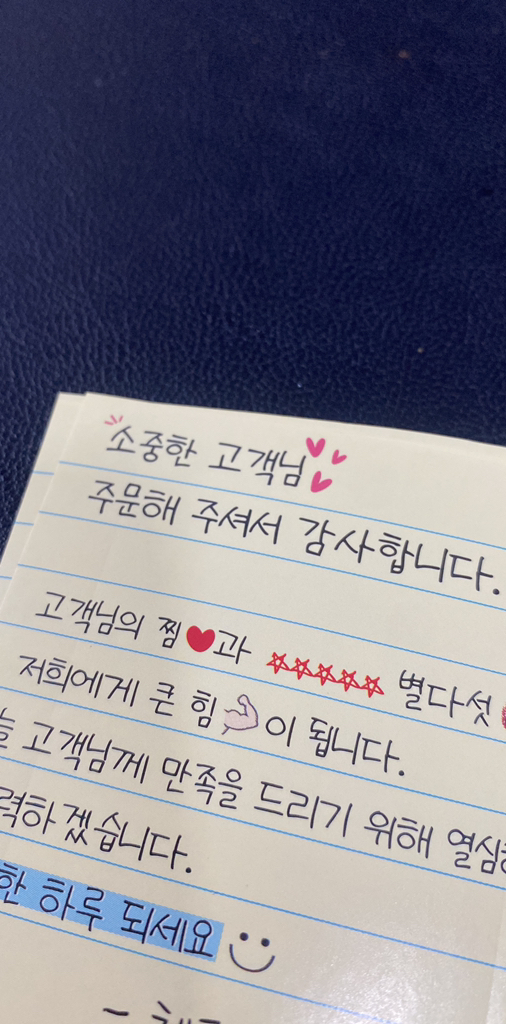 소중한 고객님
주문해 주셔서 감사합니다.
고객님의 찜♥과 ☆☆☆☆☆ 별다섯
저희에게 큰 힘💪이 됩니다.
고객님께 만족을 드리기 위해
력하겠습니다.
한 하루 되세요